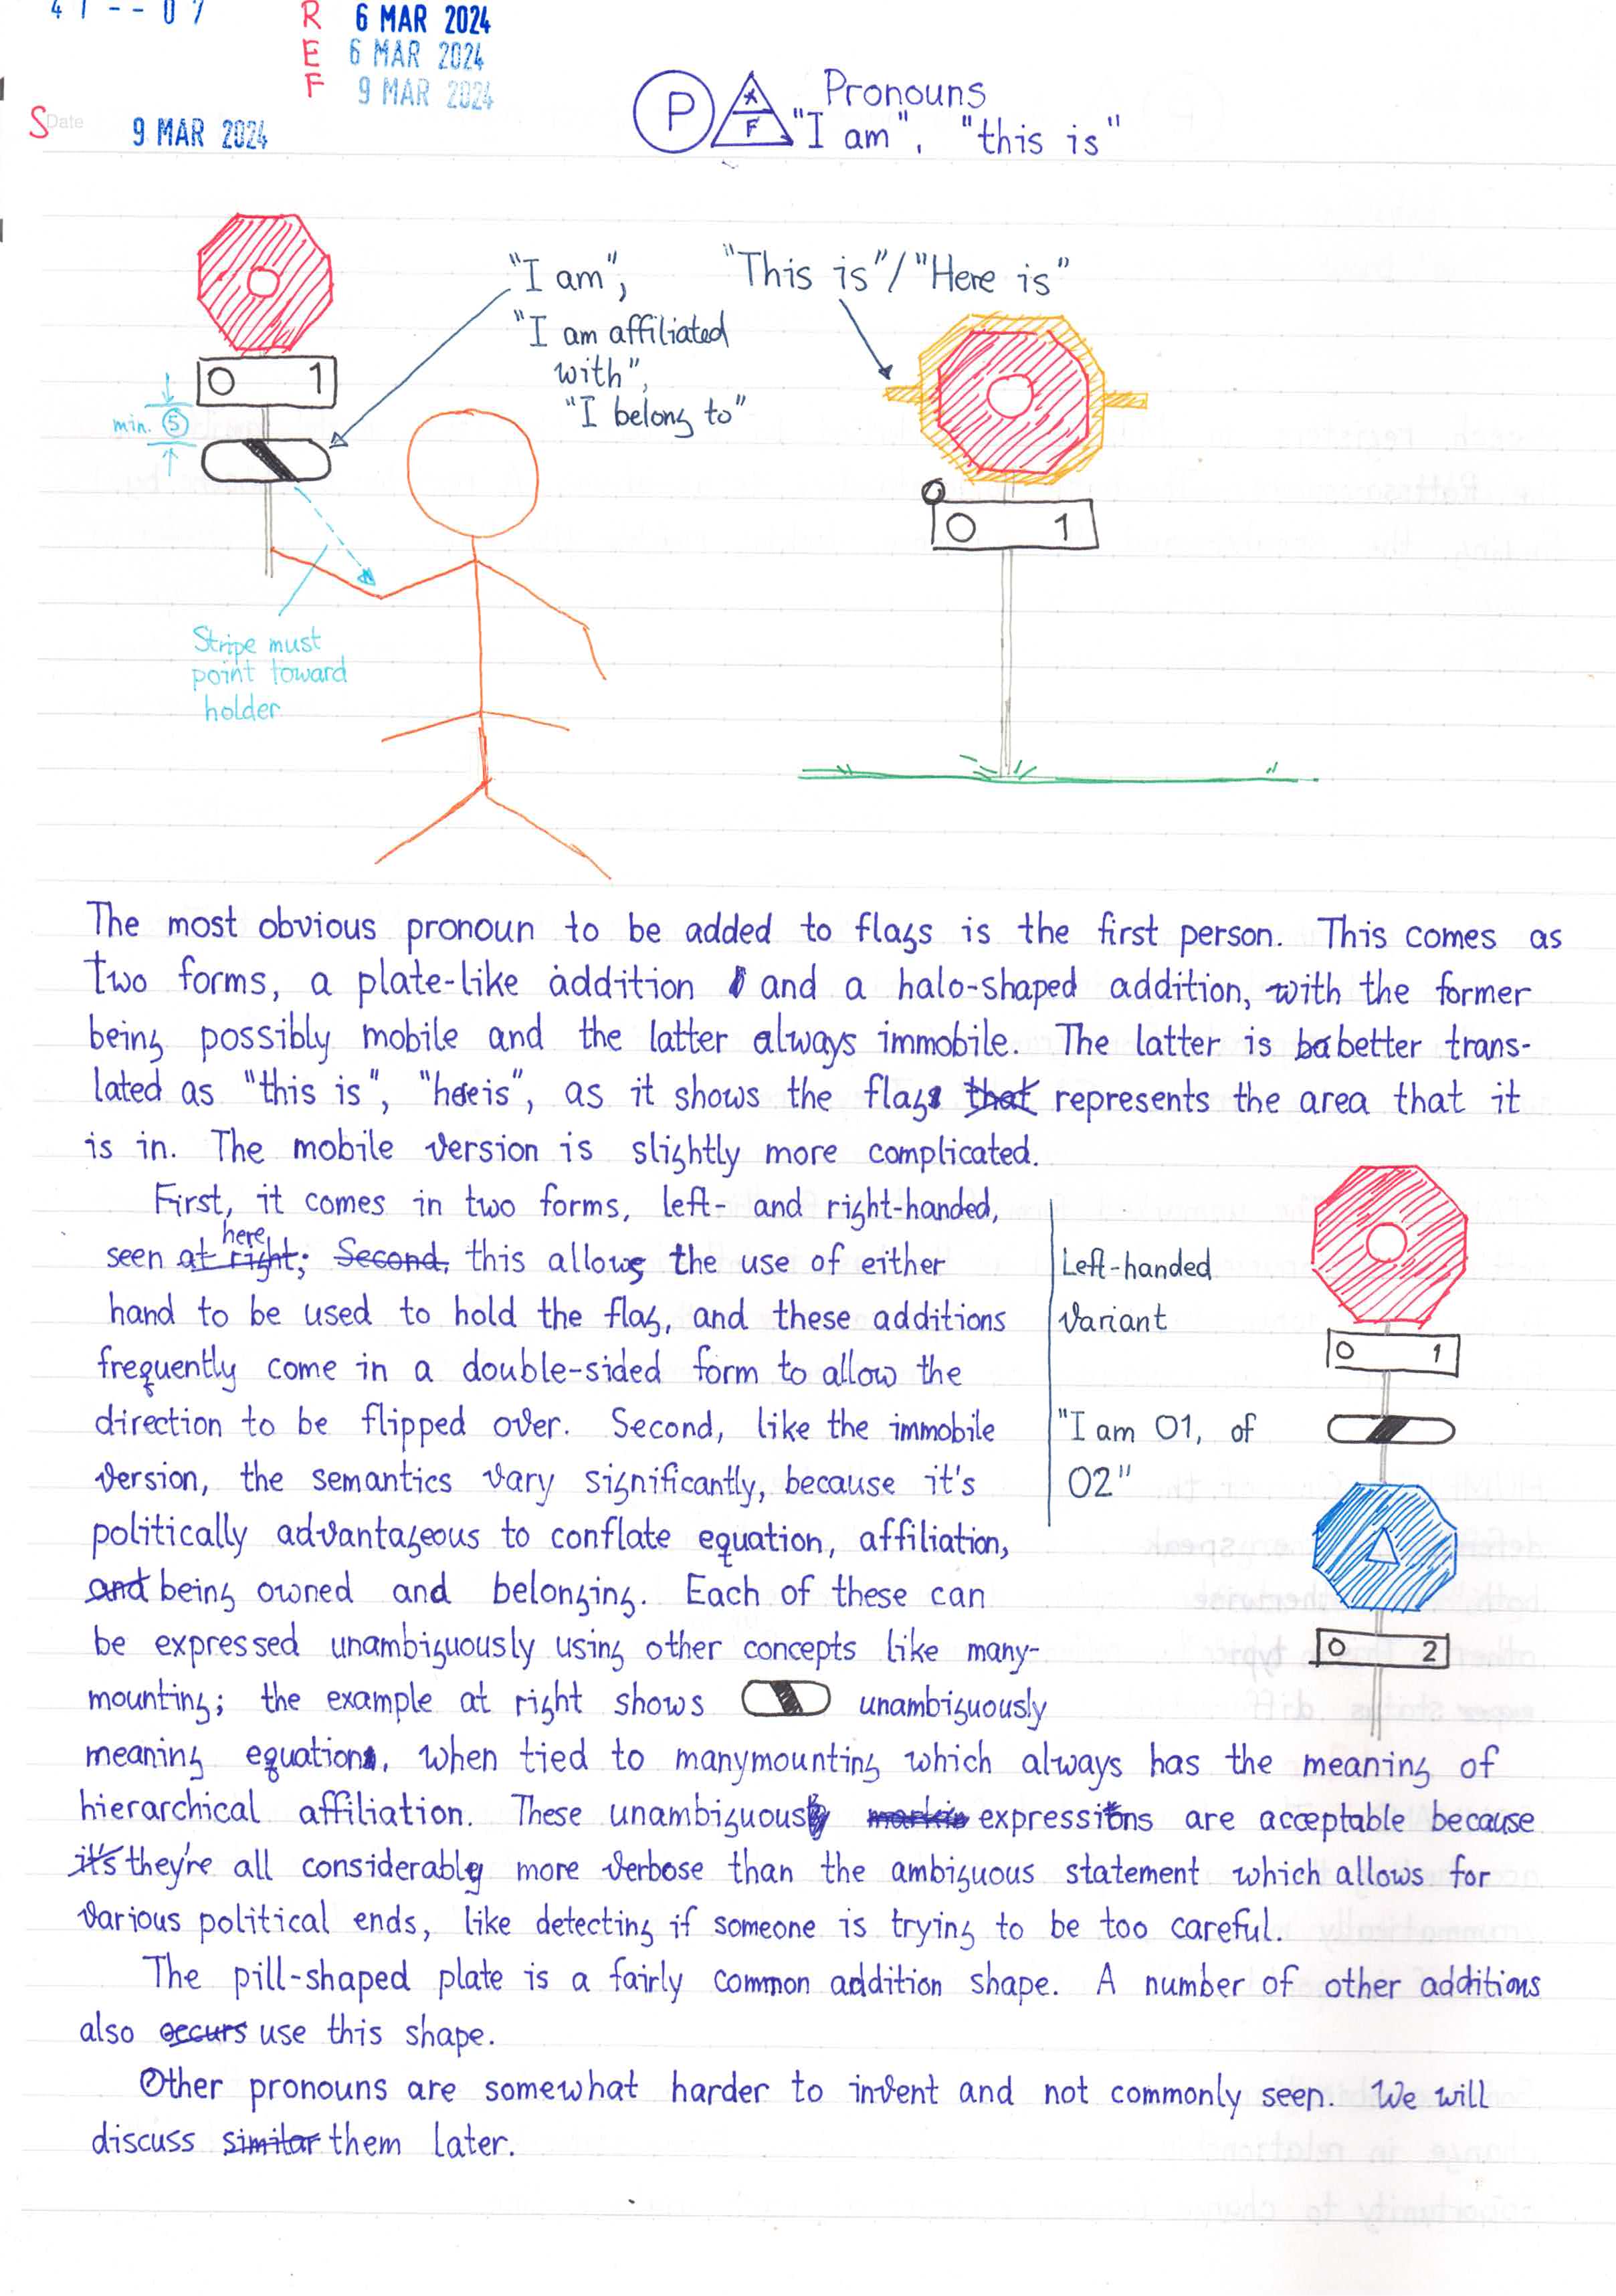 47--07
R 6 MAR 2024
E 6 MAR 2024
F 9 MAR 2024
S Date 9 MAR 2024
P * F Pronouns
"I am", "this is"
"I am",
"I am affiliated
with",
"I belong to"
"This is"/"Here is"
0 1
min. 5
0 1
Stripe must
point toward
holder
The most obvious pronoun to be added to flags is the first person. This comes as
two forms, a plate-like addition and a halo-shaped addition, with the former
being possibly mobile and the latter always immobile. The latter is better trans-
lated as "this is", "here is", as it shows the flag that represents the area that it
is in. The mobile version is slightly more complicated.
First, it comes in two forms, left- and right-handed,
here
seen at right; Second, this allows the use of either
hand to be used to hold the flag, and these additions
frequently come in a double-sided form to allow the
direction to be flipped over. Second, like the immobile
version, the semantics vary significantly, because it's
politically advantageous to conflate equation, affiliation,
and being owned and belonging. Each of these can
be expressed unambiguously using other concepts like many-
mounting; the example at right shows unambiguously
meaning equation, when tied to manymounting which always has the meaning of
hierarchical affiliation. These unambiguous expressions are acceptable because
it's they're all considerably more verbose than the ambiguous statement which allows for
various political ends, like detecting if someone is trying to be too careful.
The pill-shaped plate is a fairly common addition shape. A number of other additions
also occurs use this shape.
Other pronouns are somewhat harder to invent and not commonly seen. We will
discuss similar them later.
Left-handed
variant
0 1
"I am 01, of
02"
0 2